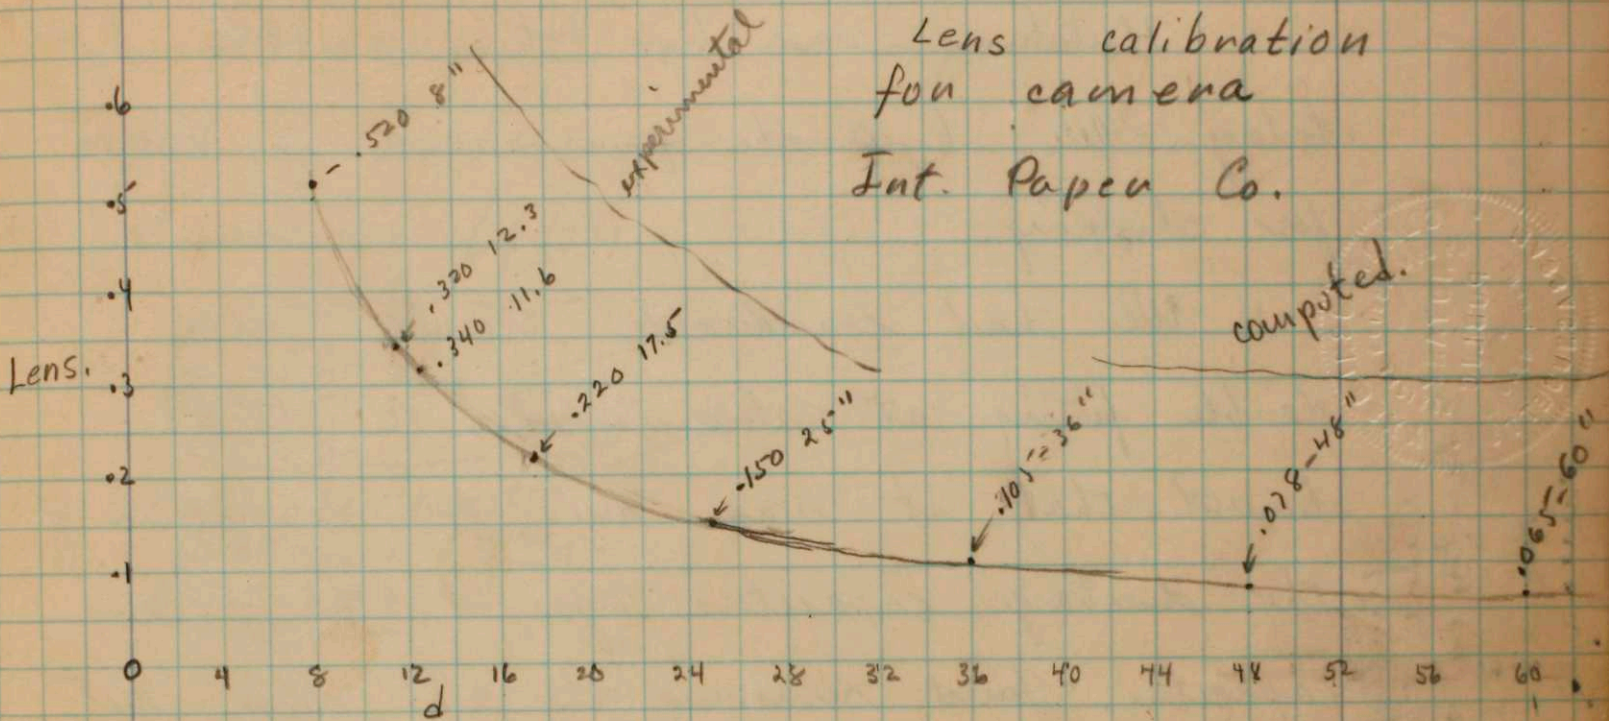 Lens calibration
for camera
Int. Paper Co.
experimental
computed.
.6
.5
.4
Lens. .3
.2
.1
.520 8"
.320 12.3
.340 11.6
.220 17.5
.150 25"
.105-36"
.078-48"
.065-60"
0 4 8 12 16 20 24 28 32 36 40 44 48 52 56 60
d